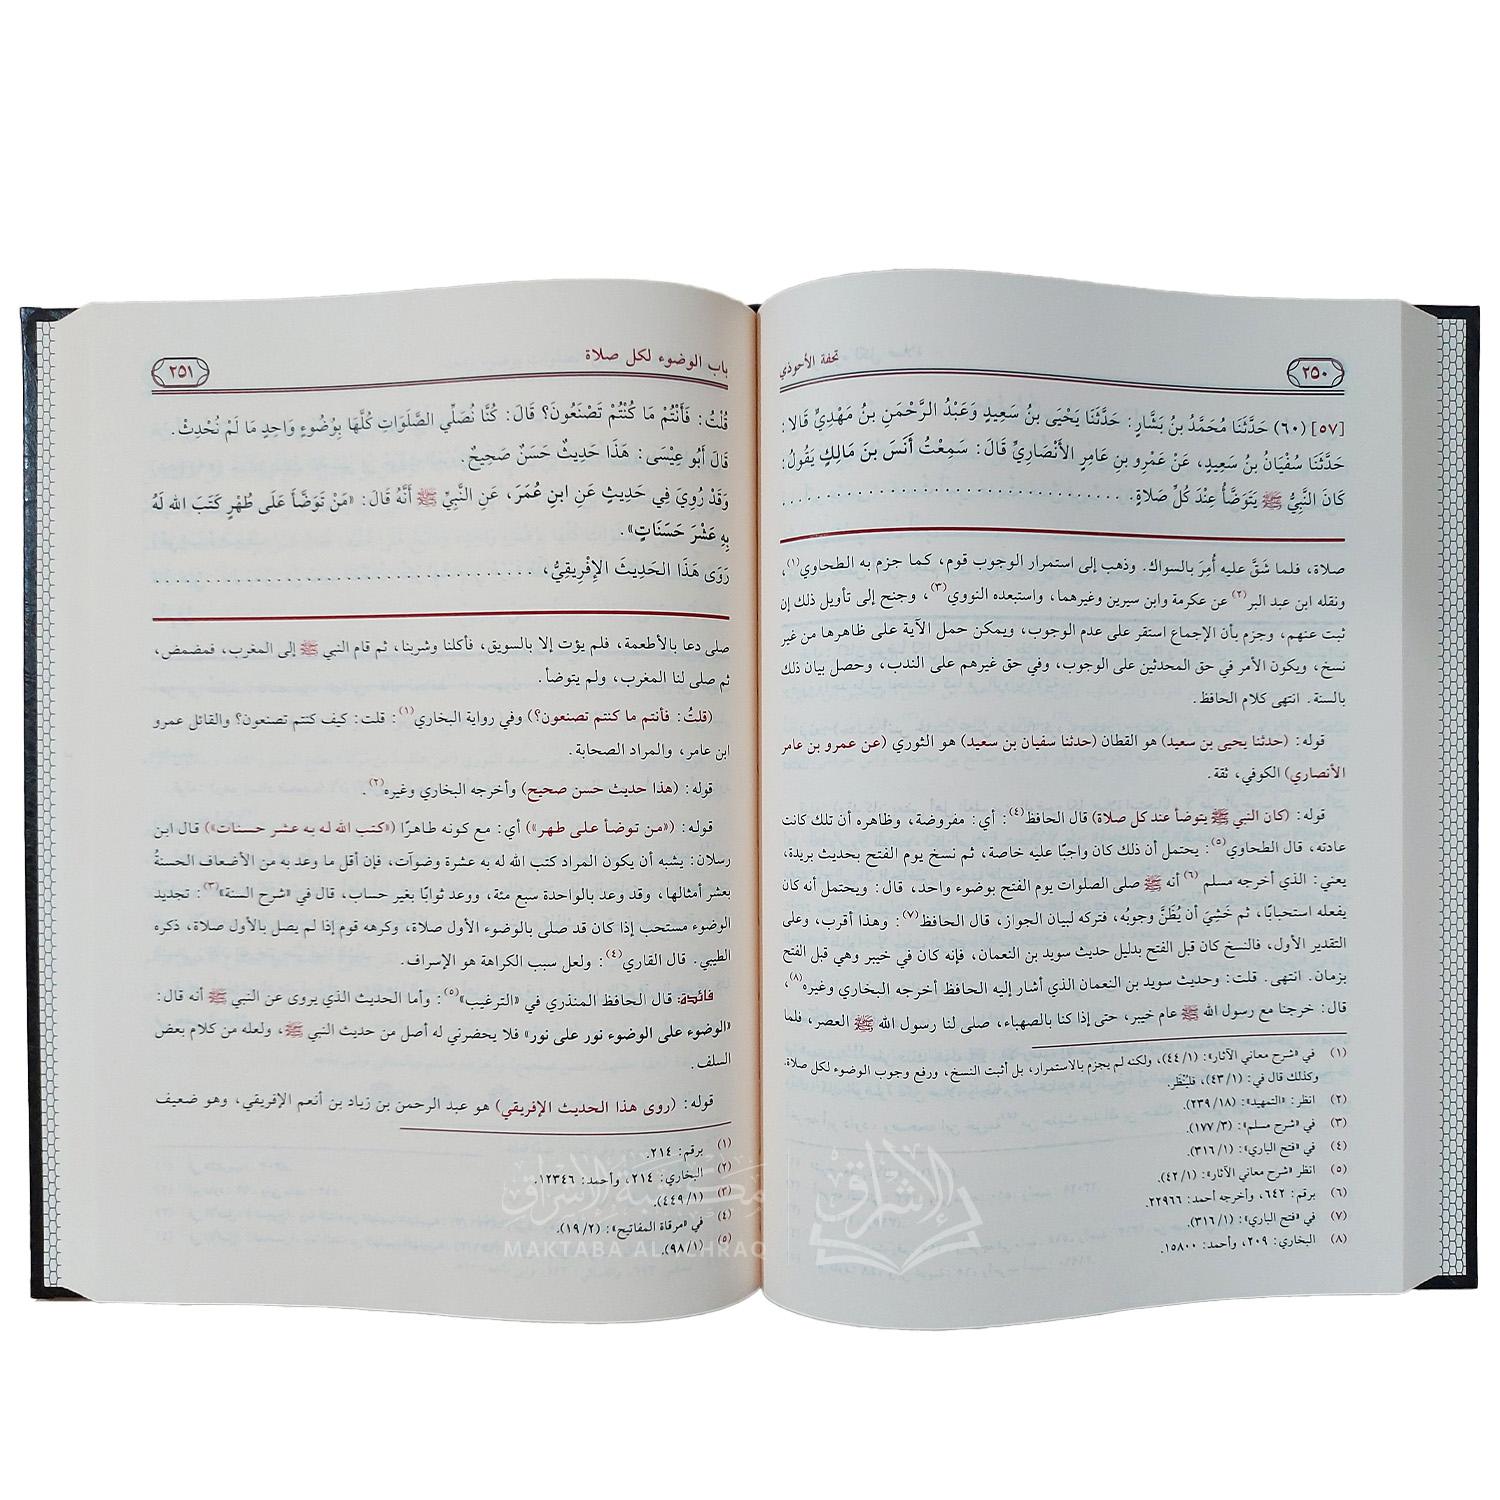 ٢٥٠
تحفة الأحوذي
[٥٧] (٦٠) حَدَّثَنَا مُحَمَّدُ بنُ بَشَّارٍ: حَدَّثَنَا يَحْيَى بنُ سَعِيدٍ وَعَبْدُ الرَّحْمَنِ بنُ مَهْدِيٍّ قَالا:
حَدَّثَنَا سُفْيَانُ بنُ سَعِيدٍ، عَنْ عَمْرِو بنِ عَامِرٍ الأَنْصَارِيِّ قَالَ: سَمِعْتُ أَنَسَ بنَ مَالِكٍ يَقُولُ:
كَانَ النَّبِيُّ ﷺ يَتَوَضَّأُ عِنْدَ كُلِّ صَلاةٍ. . . . . . . . . . . . . . . . . . . . . . . . . . . . . . . . . . . .
صلاة، فلما شَقَّ عليه أُمِرَ بالسواك. وذهب إلى استمرار الوجوب قوم، كما جزم به الطحاوي(١)،
ونقله ابن عبد البر(٢) عن عكرمة وابن سيرين وغيرهما، واستبعده النووي(٣)، وجنح إلى تأويل ذلك إن
ثبت عنهم، وجزم بأن الإجماع استقر على عدم الوجوب، ويمكن حمل الآية على ظاهرها من غير
نسخ، ويكون الأمر في حق المحدثين على الوجوب، وفي حق غيرهم على الندب، وحصل بيان ذلك
بالسنة. انتهى كلام الحافظ.
قوله: (حدثنا يحيى بن سعيد) هو القطان (حدثنا سفيان بن سعيد) هو الثوري (عن عمرو بن عامر
الأنصاري) الكوفي، ثقة.
قوله: (كان النبي ﷺ يتوضأ عند كل صلاة) قال الحافظ(٤): أي: مفروضة، وظاهره أن تلك كانت
عادته، قال الطحاوي(٥): يحتمل أن ذلك كان واجبًا عليه خاصة، ثم نسخ يوم الفتح بحديث بريدة،
يعني: الذي أخرجه مسلم(٦) أنه ﷺ صلى الصلوات يوم الفتح بوضوء واحد، قال: ويحتمل أنه كان
يفعله استحبابًا، ثم خَشِيَ أن يُظَنَّ وجوبُه، فتركه لبيان الجواز، قال الحافظ(٧): وهذا أقرب، وعلى
التقدير الأول، فالنسخ كان قبل الفتح بدليل حديث سويد بن النعمان، فإنه كان في خيبر وهي قبل الفتح
بزمان. انتهى. قلت: وحديث سويد بن النعمان الذي أشار إليه الحافظ أخرجه البخاري وغيره(٨)،
قال: خرجنا مع رسول الله ﷺ عام خيبر، حتى إذا كنا بالصهباء، صلى لنا رسول الله ﷺ العصر، فلما
(١) في «شرح معاني الآثار»: (١/ ٤٤)، ولكنه لم يجزم بالاستمرار، بل أثبت النسخ، ورفع وجوب الوضوء لكل صلاة،
وكذلك قال في: (١/ ٤٣)، فليُنْظَر.
(٢) انظر: «التمهيد»: (١٨/ ٢٣٩).
(٣) في «شرح مسلم»: (٣/ ١٧٧).
(٤) في «فتح الباري»: (١/ ٣١٦).
(٥) انظر «شرح معاني الآثار»: (١/ ٤٢).
(٦) برقم: ٦٤٢، وأخرجه أحمد: ٢٢٩٦٦.
(٧) في «فتح الباري»: (١/ ٣١٦).
(٨) البخاري: ٢٠٩، وأحمد: ١٥٨٠٠.
باب الوضوء لكل صلاة
٢٥١
قُلْتُ: فَأَنْتُمْ مَا كُنْتُمْ تَصْنَعُونَ؟ قَالَ: كُنَّا نُصَلِّي الصَّلَوَاتِ كُلَّهَا بِوُضُوءٍ وَاحِدٍ مَا لَمْ نُحْدِثْ.
قَالَ أَبُو عِيْسَى: هَذَا حَدِيثٌ حَسَنٌ صَحِيحٌ.
وَقَدْ رُوِيَ فِي حَدِيثٍ عَنِ ابنِ عُمَرَ، عَنِ النَّبِيِّ ﷺ أَنَّهُ قَالَ: «مَنْ تَوَضَّأَ عَلَى طُهْرٍ كَتَبَ الله لَهُ
بِهِ عَشْرَ حَسَنَاتٍ».
رَوَى هَذَا الحَدِيثَ الإِفْرِيقِيُّ، . . . . . . . . . . . . . . . . . . . . . . . . . . . . . . . . . . . . .
صلى دعا بالأطعمة، فلم يؤت إلا بالسويق، فأكلنا وشربنا، ثم قام النبي ﷺ إلى المغرب، فمضمض،
ثم صلى لنا المغرب، ولم يتوضأ.
(قلتُ: فأنتم ما كنتم تصنعون؟) وفي رواية البخاري(١): قلت: كيف كنتم تصنعون؟ والقائل عمرو
ابن عامر، والمراد الصحابة.
قوله: (هذا حديث حسن صحيح) وأخرجه البخاري وغيره(٢).
قوله: («من توضأ على طهر») أي: مع كونه طاهرًا («كتب الله له به عشر حسنات») قال ابن
رسلان: يشبه أن يكون المراد كتب الله له به عشرة وضوآت، فإن أقل ما وعد به من الأضعاف الحسنةُ
بعشر أمثالها، وقد وعد بالواحدة سبع مئة، ووعد ثوابًا بغير حساب، قال في «شرح السنة»(٣): تجديد
الوضوء مستحب إذا كان قد صلى بالوضوء الأول صلاة، وكرهه قوم إذا لم يصل بالأول صلاة، ذكره
الطيبي. قال القاري(٤): ولعل سبب الكراهة هو الإسراف.
فائدة: قال الحافظ المنذري في «الترغيب»(٥): وأما الحديث الذي يروى عن النبي ﷺ أنه قال:
«الوضوء على الوضوء نور على نور» فلا يحضرني له أصل من حديث النبي ﷺ، ولعله من كلام بعض
السلف.
قوله: (روى هذا الحديث الإفريقي) هو عبد الرحمن بن زياد بن أنعم الإفريقي، وهو ضعيف
(١) برقم: ٢١٤.
(٢) البخاري: ٢١٤، وأحمد: ١٢٣٤٦.
(٣) (١/ ٤٤٩).
(٤) في «مرقاة المفاتيح»: (٢/ ١٩).
(٥) (١/ ٩٨).
مكتبة الإشراق
MAKTABA AL ISHRAQ
الإشراق